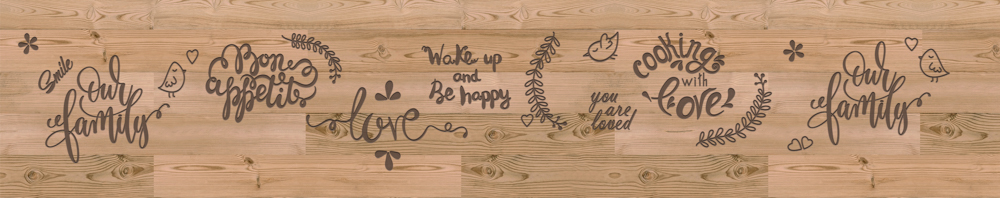 Smile
Our
family
Bon
appetit
love
Wake up
and
Be happy
you
are
loved
cooking
with
love
Our
family